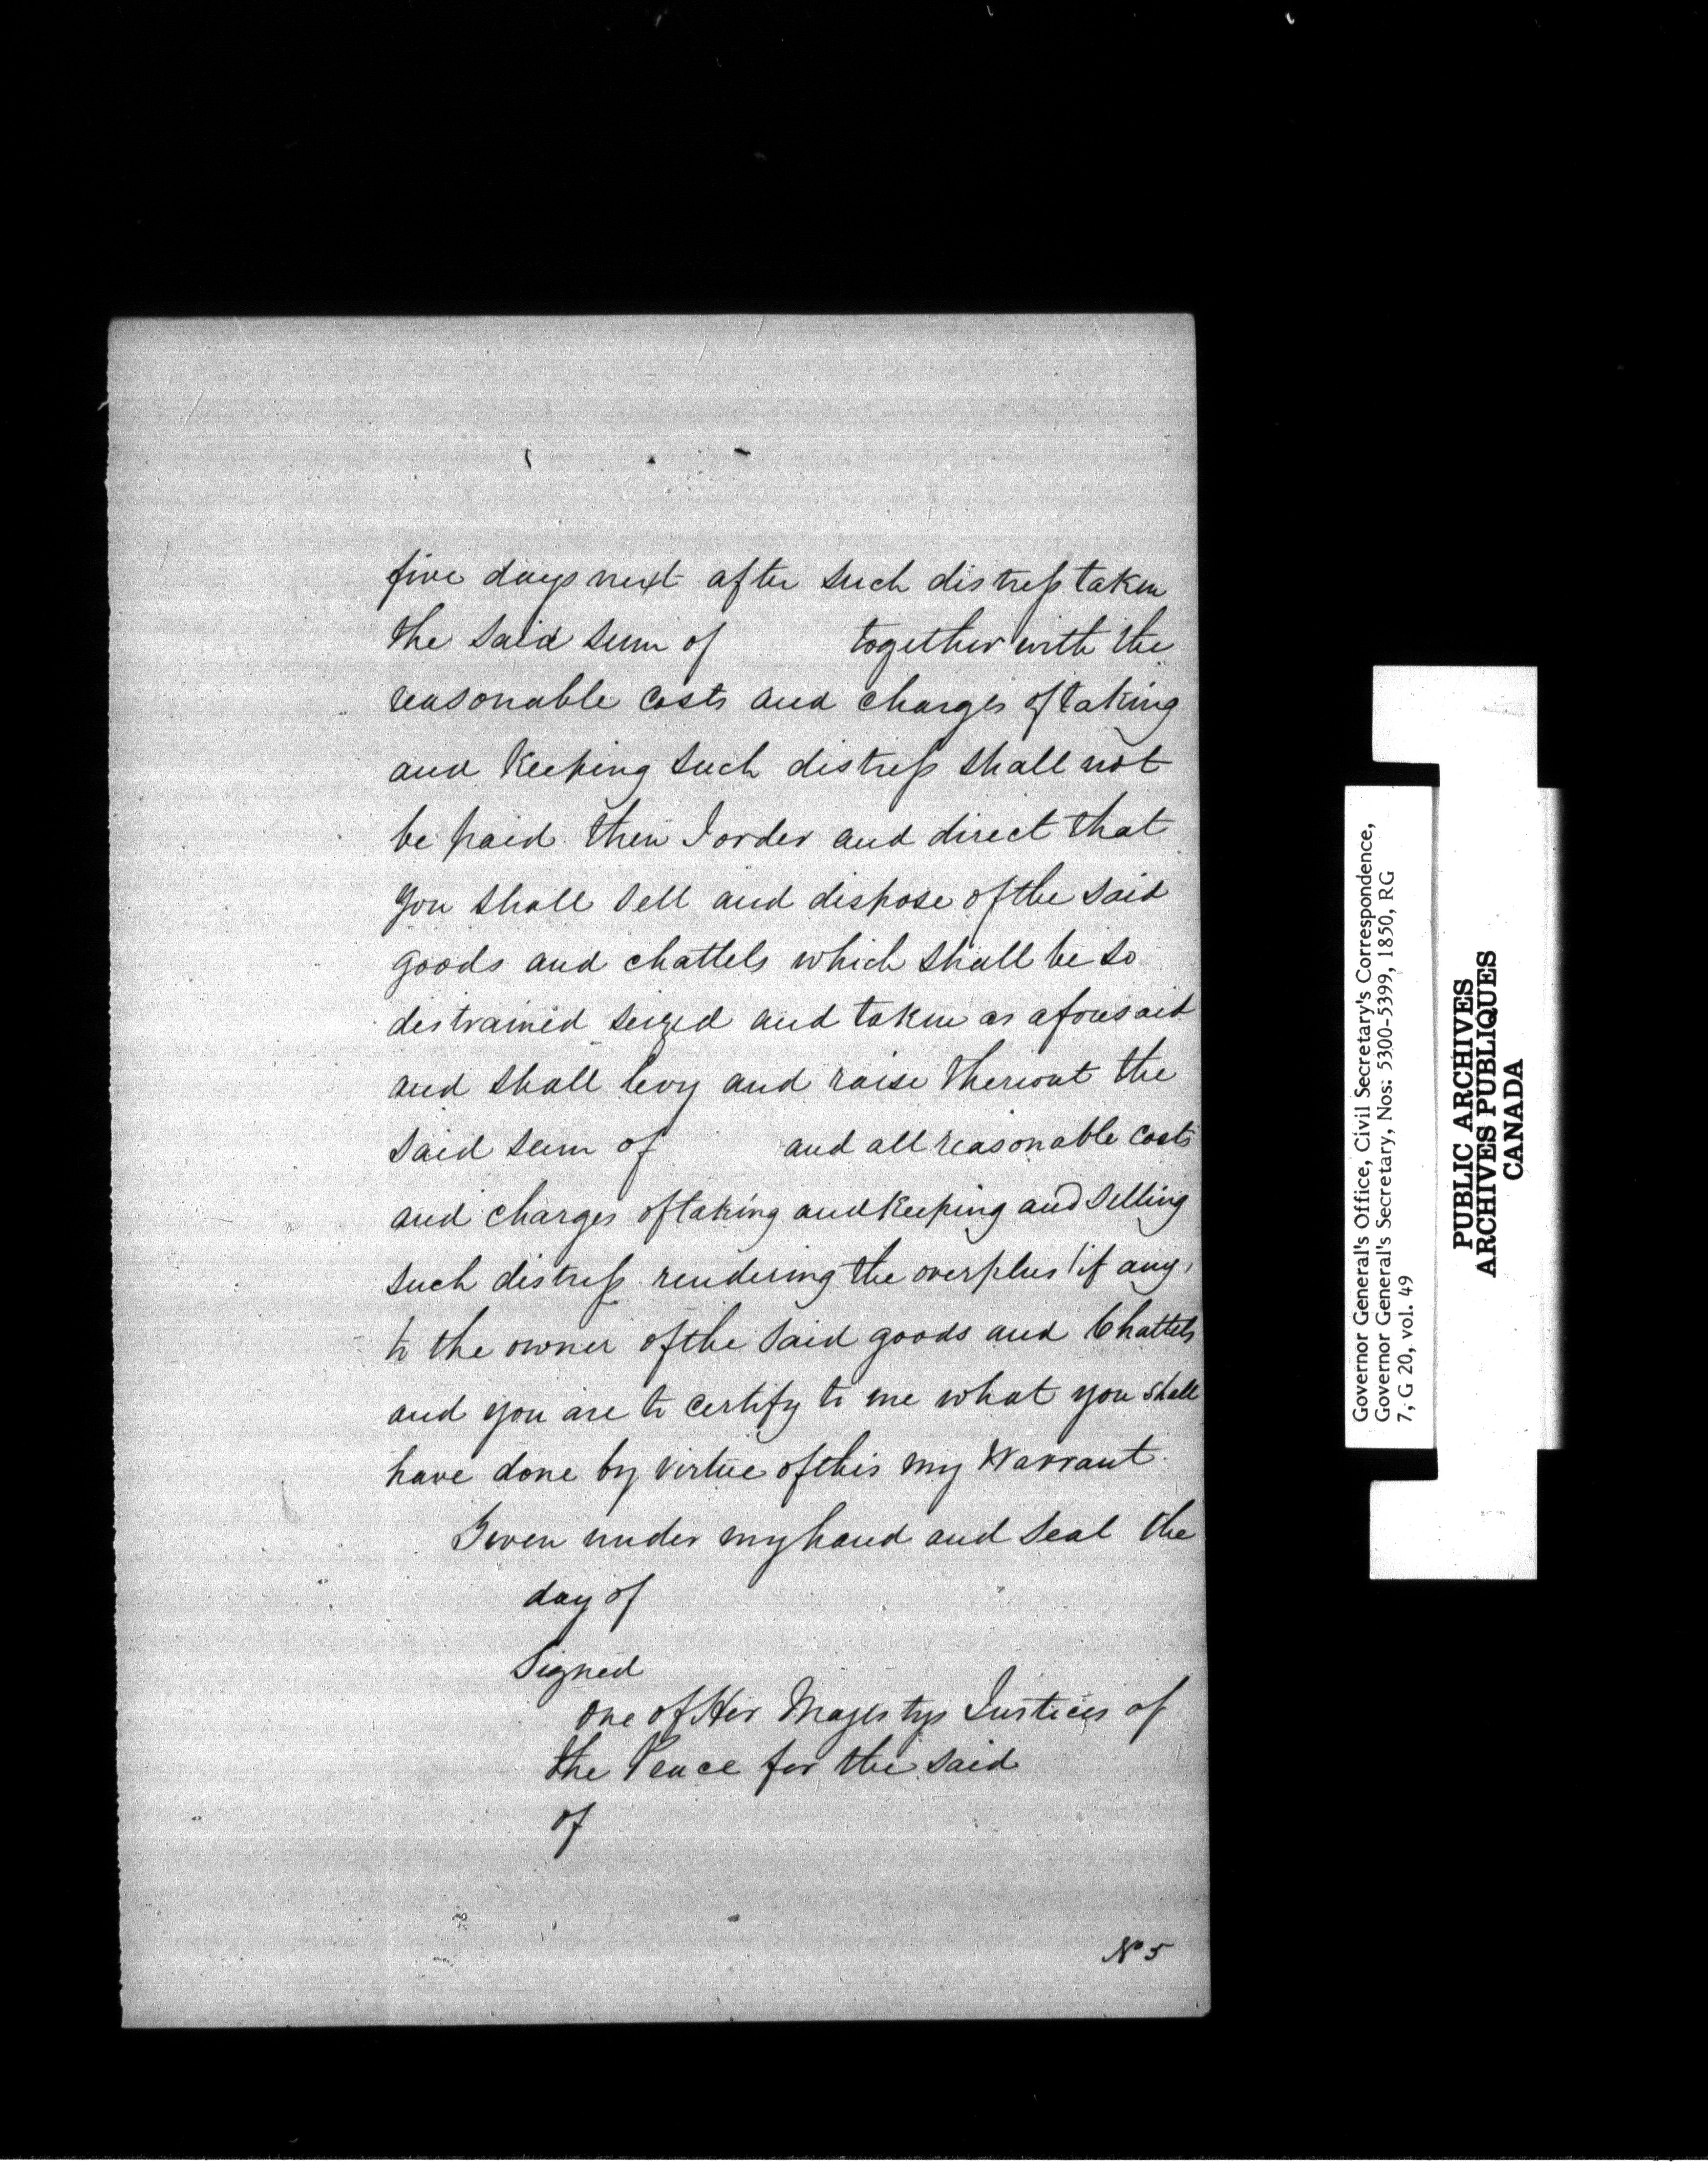 five days next after such distress taken
the said sum of together with the
reasonable costs and charges of taking
and keeping such distress shall not
be paid then I order and direct that
you shall sell and dispose of the said
goods and chattels which shall be so
distrained seized and taken as aforesaid
and shall levy and raise thereout the
said sum of and all reasonable costs
and charges of taking and keeping and selling
such distress rendering the overplus (if any)
to the owner of the said goods and Chattels
and you are to certify to me what you shall
have done by virtue of this my Warrant.
Given under my hand and seal the
day of
Signed
One of Her Majestys Justices of
the Peace for the said
of
No 5
Governor General's Office, Civil Secretary's Correspondence,
Governor General's Secretary, Nos: 5300-5399, 1850, RG
7, G 20, vol. 49
PUBLIC ARCHIVES
ARCHIVES PUBLIQUES
CANADA